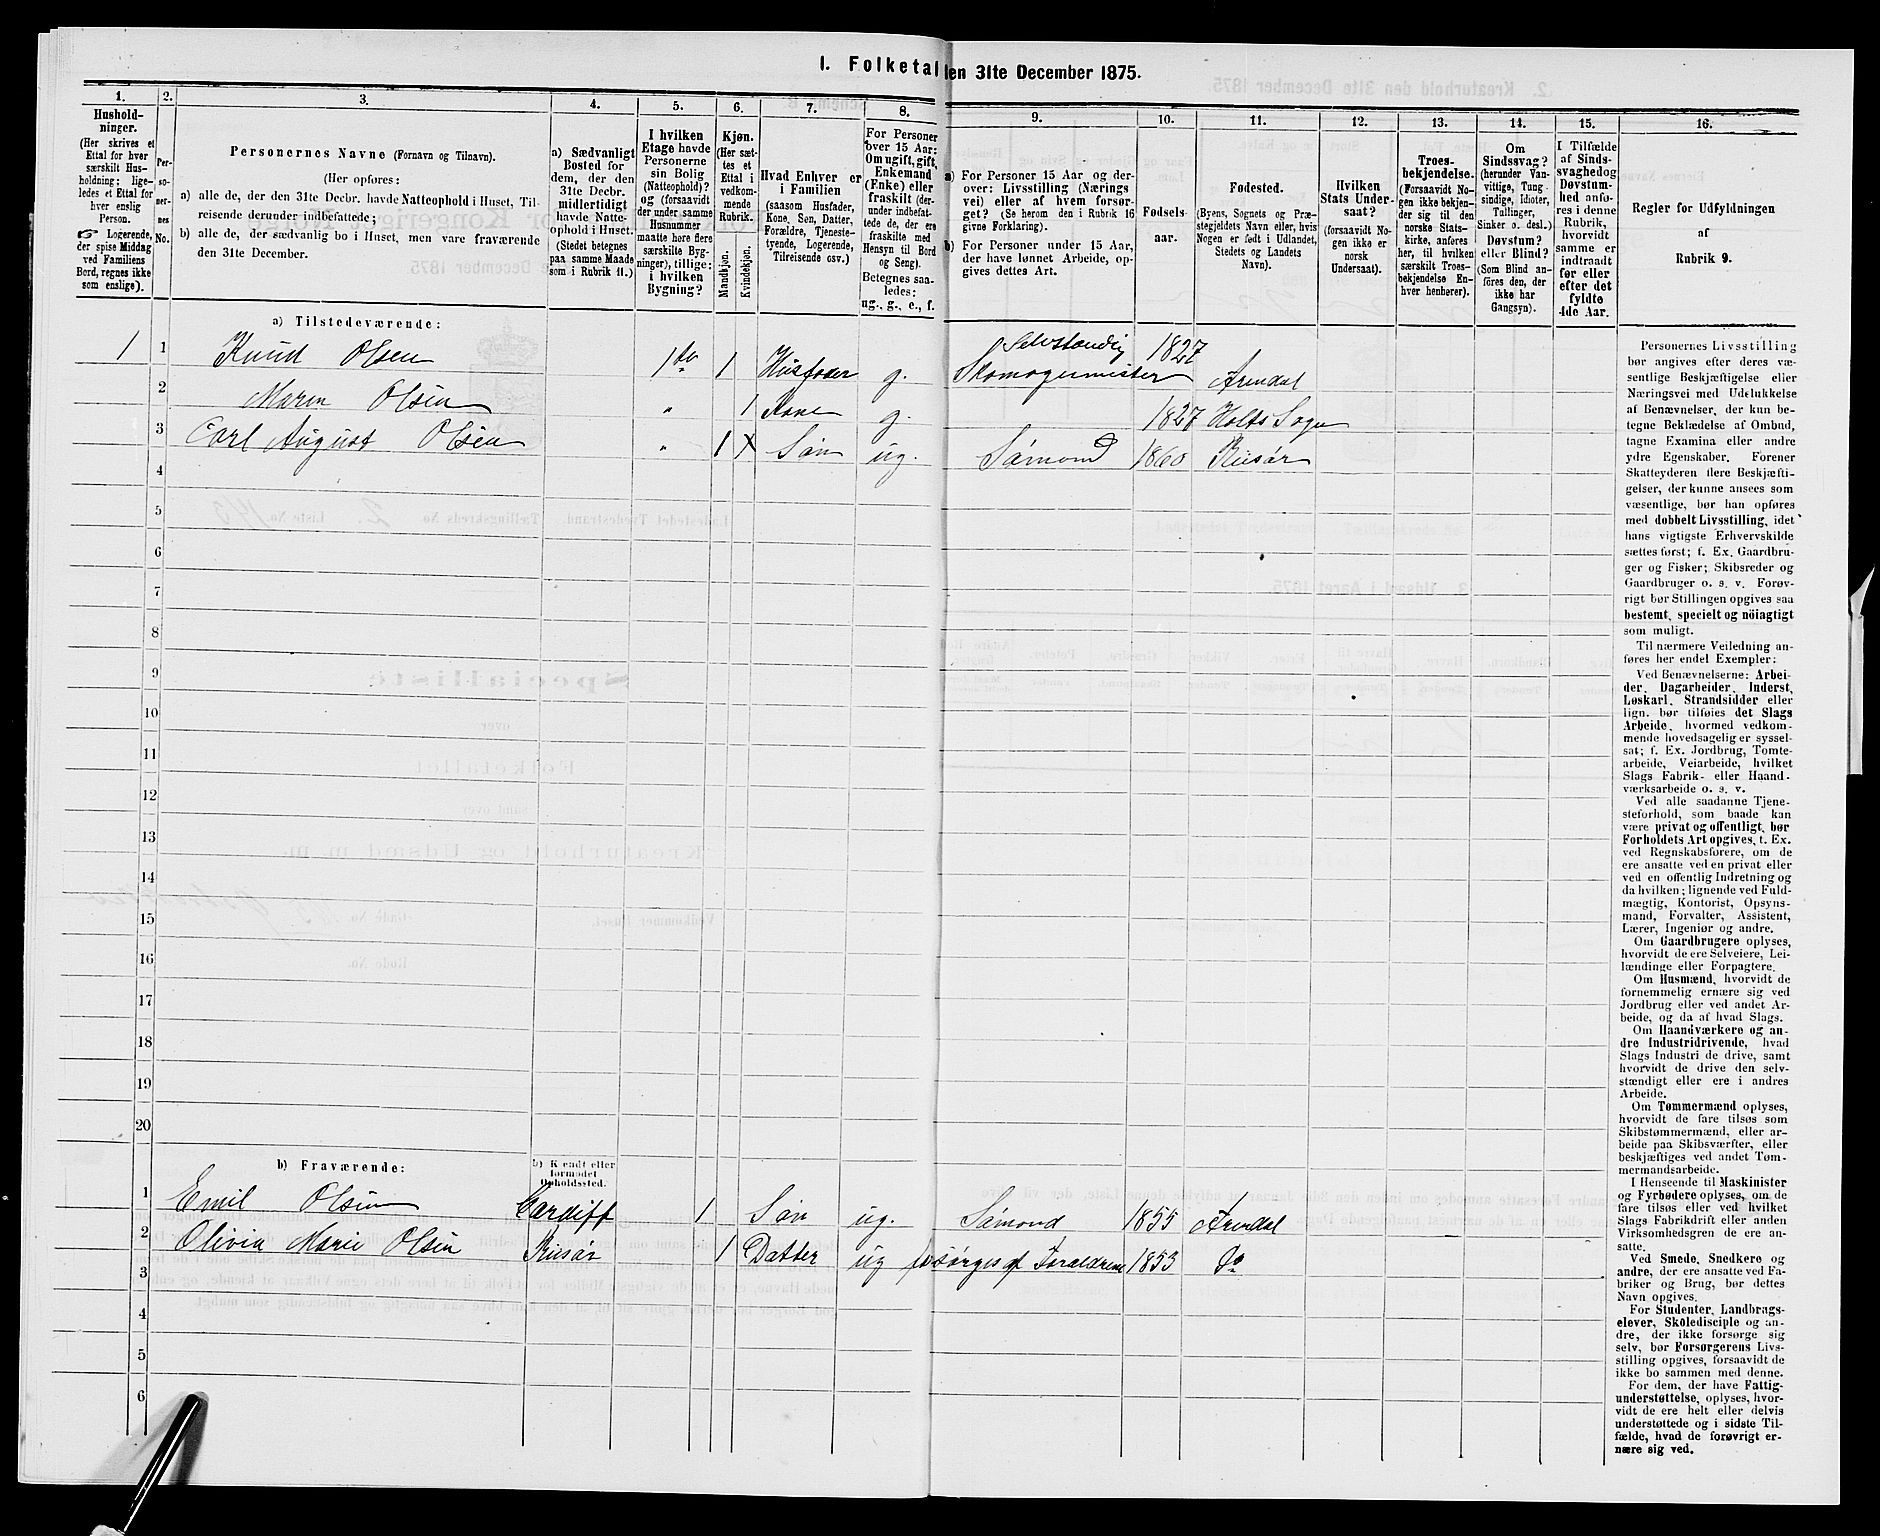 I. Folketal den 31te December 1875.
1. 2. 3. 4. 5. 6. 7. 8. 9. 10. 11. 12. 13. 14. 15. 16.
Hushold-
ninger.
(Her skrives et
Ettal for hver
særskilt Hus-
holdning; lige-
ledes et Ettal for
hver enslig
Person.
☞ Logerende,
der spise Middag
ved Familiens
Bord, regnes ikke
som enslige).
Per-
so-
ner-
nes
No.
Personernes Navne (Fornavn og Tilnavn).
(Her opføres:
a) alle de, der den 31te Decbr. havde Natteophold i Huset, Til-
reisende derunder indbefattede;
b) alle de, der sædvanlig bo i Huset, men vare fraværende
den 31te December.
a) Sædvanligt
Bosted for
dem, der den
31te Decbr.
midlertidigt
havde Natte-
ophold i Huset.
(Stedet betegnes
paa samme Maade
som i Rubrik 11.)
I hvilken
Etage havde
Personerne
sin Bolig
(Natteophold)?
og (forsaavidt
der under samme
Husnummer
maatte høre flere
særskilte Byg-
ninger), tillige:
i hvilken
Bygning?
Kjøn.
(Her sæt-
tes et
Ettal i
vedkom-
mende
Rubrik.
Mandkjøn.
Kvindekjøn.
Hvad Enhver er
i Familien
(saasom Husfader,
Kone, Søn, Datter,
Forældre, Tjeneste-
tyende, Logerende,
Tilreisende osv.)
For Personer
over 15 Aar:
Om ugift, gift,
Enkemand
(Enke) eller
fraskilt (der-
under indbefat-
tede de, der ere
fraskilte med
Hensyn til Bord
og Seng).
Betegnes saa-
ledes:
ug., g., e., f.
a) For Personer 15 Aar og der-
over: Livsstilling (Nærings
vei) eller af hvem forsør-
get? (Se herom den i Rubrik 16
givne Forklaring).
b) For Personer under 15 Aar,
der have lønnet Arbeide, op-
gives dettes Art.
Fødsels-
aar.
Fødested.
(Byens, Sognets og Præ-
stegjeldets Navn eller, hvis
Nogen er født i Udlandet,
Stedets og Landets
Navn).
Hvilken
Stats Under-
saat?
(forsaavidt No-
gen ikke er
norsk
Undersaat).
Troes-
bekjendelse.
(Forsaavidt No-
gen ikke bekjen-
der sig til den
norske Stats-
kirke, anføres
her, til hvilken
særskilt Troes-
bekjendelse En-
hver henhører).
Om
Sindssvag?
(herunder Van-
vittige, Tung-
sindige, Idioter,
Tullinger,
Sinker o. desl.)
Døvstum?
eller Blind?
(Som Blind an-
føres den, der
ikke har
Gangsyn).
I Tilfælde
af Sinds-
svaghed og
Døvstum-
hed anfø-
res i denne
Rubrik,
hvorvidt
samme er
indtraadt
før eller
efter det
fyldte
4de Aar.
Regler for Udfyldningen
af
Rubrik 9.
a) Tilstedeværende:
1 1 Knud Olsen 1ste 1 Husfader g. Selvstændig Skomagermester 1827 Arendal
2 Maren Olsen " 1 Kone g. 1827 Holts Sogn
3 Carl August Olsen " 1 Søn ug. Sømand 1860 Riisør
4
5
6
7
8
9
10
11
12
13
14
15
16
17
18
19
20
b) Fraværende:
b) Kjendt eller
formodet
Opholdssted.
1 Emil Olsen Cardiff 1 Søn ug. Sømand 1855 Arendal
2 Olivia Marie Olsen Riisør 1 Datter ug forsørges af Forældrene 1853 Do
3
4
5
6
Personernes Livsstilling
bør angives efter deres væ-
sentlige Beskjæftigelse eller
Næringsvei med Udelukkelse
af Benævnelser, der kun be-
tegne Beklædelse af Ombud,
tagne Examina eller andre
ydre Egenskaber. Forener
Skatteyderen flere Beskjæfti-
gelser, der kunne ansees som
væsentlige, bør han opføres
med dobbelt Livsstilling, idet
hans vigtigste Erhvervskilde
sættes først; f. Ex. Gaardbru-
ger og Fisker; Skibsreder og
Gaardbruger o. s. v. Forøv-
rigt bør Stillingen opgives saa
bestemt, specielt og nøiagtigt
som muligt.
Til nærmere Veiledning an-
føres her endel Exempler:
Ved Benævnelserne: Arbei-
der, Dagarbeider, Inderst,
Løskarl, Strandsidder eller
lign. bør tilføies det Slags
Arbeide, hvormed vedkom-
mende hovedsagelig er syssel-
sat; f. Ex. Jordbrug, Tomte-
arbeide, Veiarbeide, hvilket
Slags Fabrik- eller Haand-
værksarbeide o. s. v.
Ved alle saadanne Tjene-
steforhold, som baade kan
være privat og offentligt, bør
Forholdets Art opgives, t. Ex.
ved Regnskabsførere, om de
ere ansatte ved en privat eller
ved en offentlig Indretning og
da hvilken; lignende ved Fuld-
mægtig, Kontorist, Opsyns-
mand, Forvalter, Assistent,
Lærer, Ingeniør og andre.
Om Gaardbrugere oplyses,
hvorvidt de ere Selveiere, Lei-
lændinge eller Forpagtere.
Om Husmænd, hvorvidt de
fornemmelig ernære sig ved
Jordbrug eller ved andet Ar-
beide, og da af hvad Slags.
Om Haandværkere og an-
dre Industridrivende, hvad
Slags Industri de drive, samt
hvorvidt de drive den selv-
stændigt eller ere i andres
Arbeide.
Om Tømmermænd oplyses,
hvorvidt de fare tilsøs som
Skibstømmermænd, eller ar-
beide paa Skibsværfter, eller
beskjæftiges ved andet Tøm-
mermandsarbeide.
I Henseende til Maskinister
og Fyrbødere oplyses, om de
fare tilsøs eller ved hvilket
Slags Fabrikdrift eller anden
Virksomhedsgren de ere an-
satte.
Ved Smede, Snedkere og
andre, der ere ansatte ved Fa-
briker og Brug, bør dettes
Navn opgives.
For Studenter, Landbrugs-
elever, Skoledisciple og an-
dre, der ikke forsørge sig
selv, bør Forsørgerens Livs-
stilling opgives, forsaavidt de
ikke bo sammen med denne.
For dem, der have Fattig-
understøttelse, oplyses, hvor-
vidt de ere helt eller delvis
understøttede og i sidste Til-
fælde, hvad de forøvrigt er-
nære sig ved.